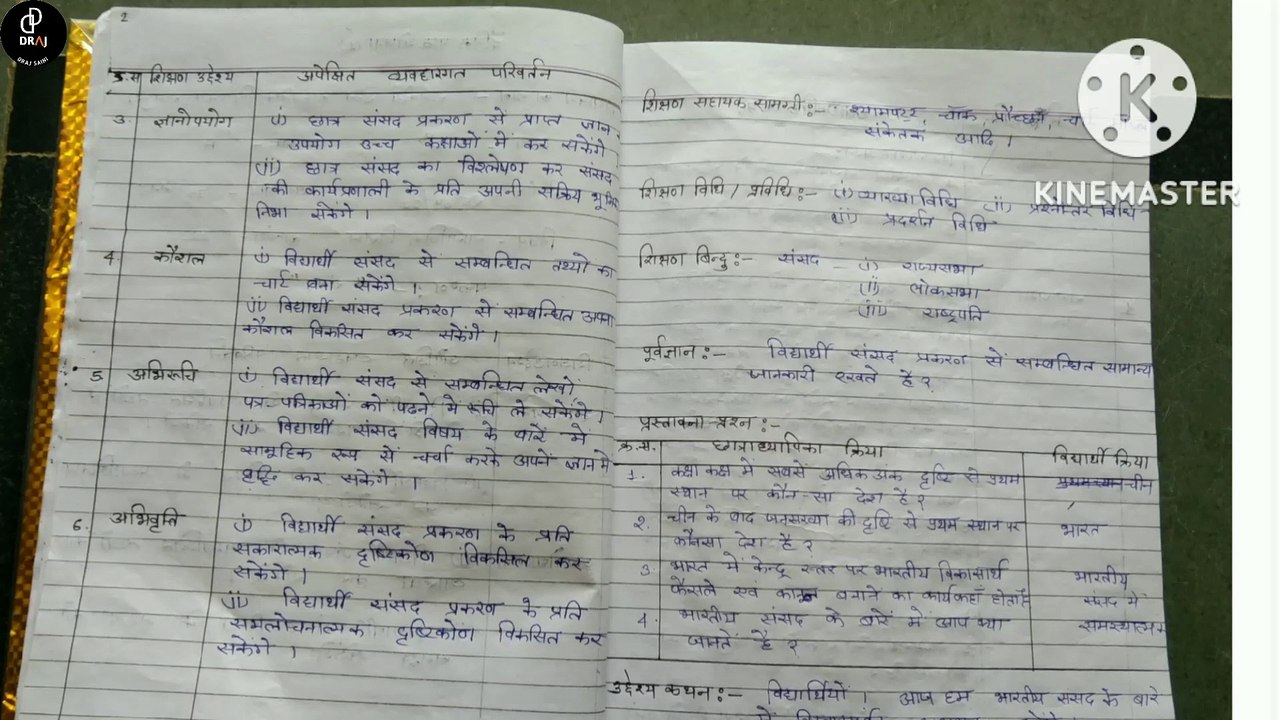 DRAJ
DRAJ SAINI
KINEMASTER
2
क्र.स शिक्षण उद्देश्य अपेक्षित व्यवहारगत परिवर्तन
3. ज्ञानोपयोग (i) छात्र संसद प्रकरण से प्राप्त ज्ञान
उपयोग उच्च कक्षाओं में कर सकेंगे
(ii) छात्र संसद का विश्लेषण कर संसद
की कार्यप्रणाली के प्रति अपनी सक्रिय
निभा सकेंगे ।
4 कौशल (i) विद्यार्थी संसद से सम्बन्धित तथ्यों का
चार्ट बना सकेंगे ।
(ii) विद्यार्थी संसद प्रकरण से सम्बन्धित अपना
कौशल विकसित कर सकेंगे ।
5. अभिरूचि (i) विद्यार्थी संसद से सम्बन्धित लेखों
पत्र-पत्रिकाओं को पढने मे रूचि ले सकेंगे ।
(ii) विद्यार्थी संसद विषय के बारें मे
सामूहिक रूप से चर्चा करके अपने ज्ञान मे
वृद्धि कर सकेंगे ।
6. अभिवृति (i) विद्यार्थी संसद प्रकरण के प्रति
सकारात्मक दृष्टिकोण विकसित कर
सकेंगे ।
(ii) विद्यार्थी संसद प्रकरण के प्रति
समलोचनात्मक दृष्टिकोण विकसित कर
सकेंगे ।
शिक्षण सहायक सामग्री:- श्यामपट्ट, चॉक,
संकेतक आदि ।
शिक्षण विधि / प्रविधि:- (i) व्याख्या विधि (ii) प्रश्नोत्तर विधि
(iii) प्रदर्शन विधि
शिक्षण बिन्दु:- संसद (i) राज्यसभा
(ii) लोकसभा
(iii) राष्ट्रपति
पूर्वज्ञान:- विद्यार्थी संसद प्रकरण से सम्बन्धित सामान्य
जानकारी रखते है ?
प्रस्तावना प्रश्न:-
क्र.स. छात्राध्यापिका क्रिया विद्यार्थी क्रिया
1. कक्षा कक्ष मे सबसे अधिक अंक दृष्टि से प्रथम चीन
स्थान पर कौन-सा देश है ?
2. चीन के बाद जनसंख्या की दृष्टि से प्रथम स्थान पर भारत
कौनसा देश है ?
3. भारत में केन्द्र स्तर पर भारतीय विकासार्थ भारतीय
फैसले एवं कानून बनाने का कार्य कहाँ होता है संसद में
4. भारतीय संसद के बारें में आप क्या समस्यात्मक
जानते है ?
उद्देश्य कथन:- विद्यार्थियों । आज हम भारतीय संसद के बारे